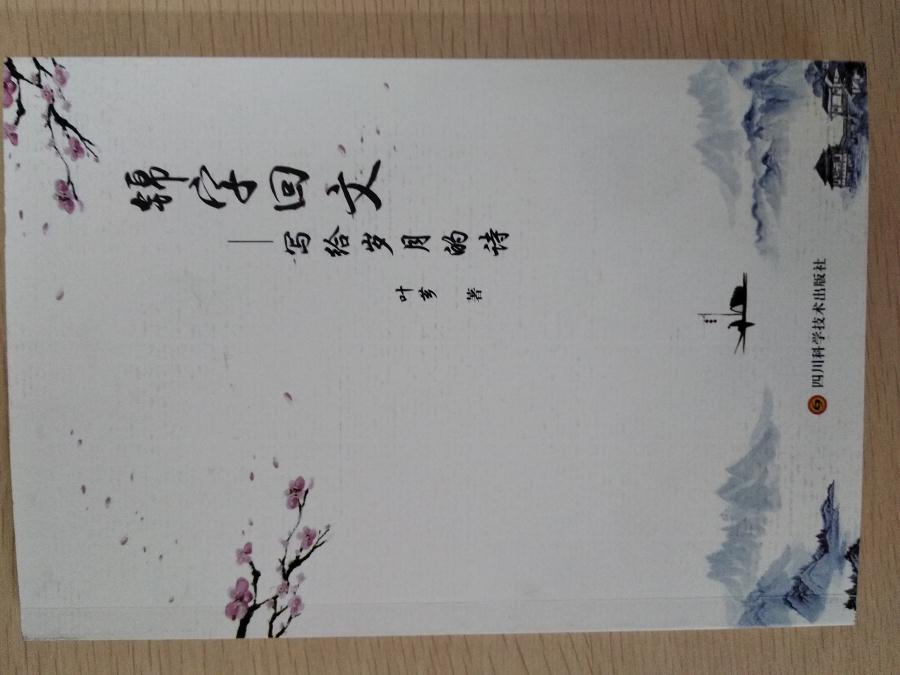 锦字回文
——写给岁月的诗
叶芗 著
四川科学技术出版社